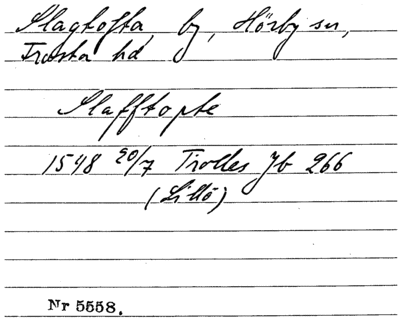 Slagtofta, by, Hörby sn,
Frosta hd
Slafftopte
1548 20/7 Trolles Jb 266
(Lillö)
Nr 5558.